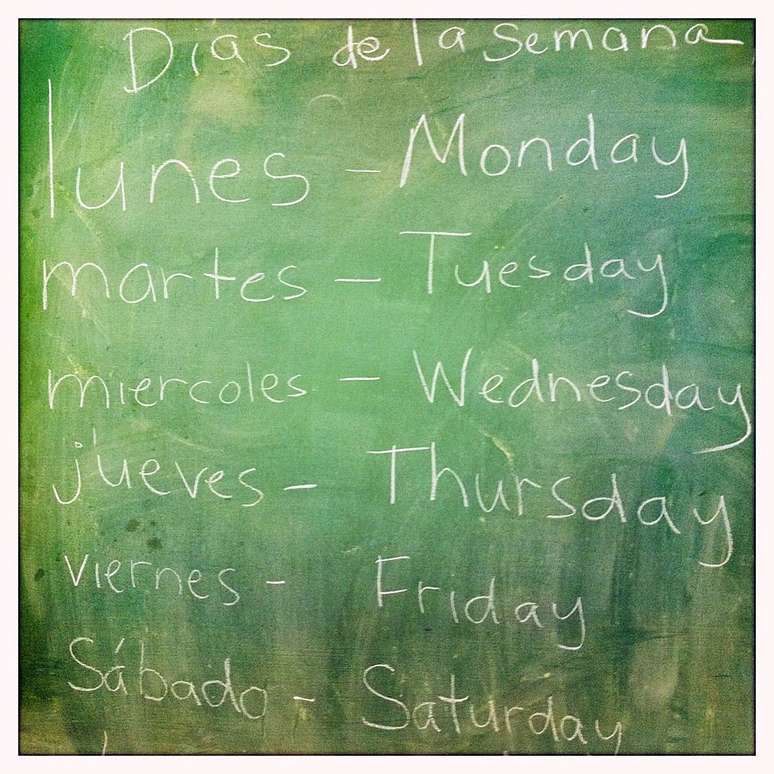 Dias de la semana
lunes - Monday
martes - Tuesday
miercoles - Wednesday
jueves - Thursday
viernes - Friday
Sábado - Saturday